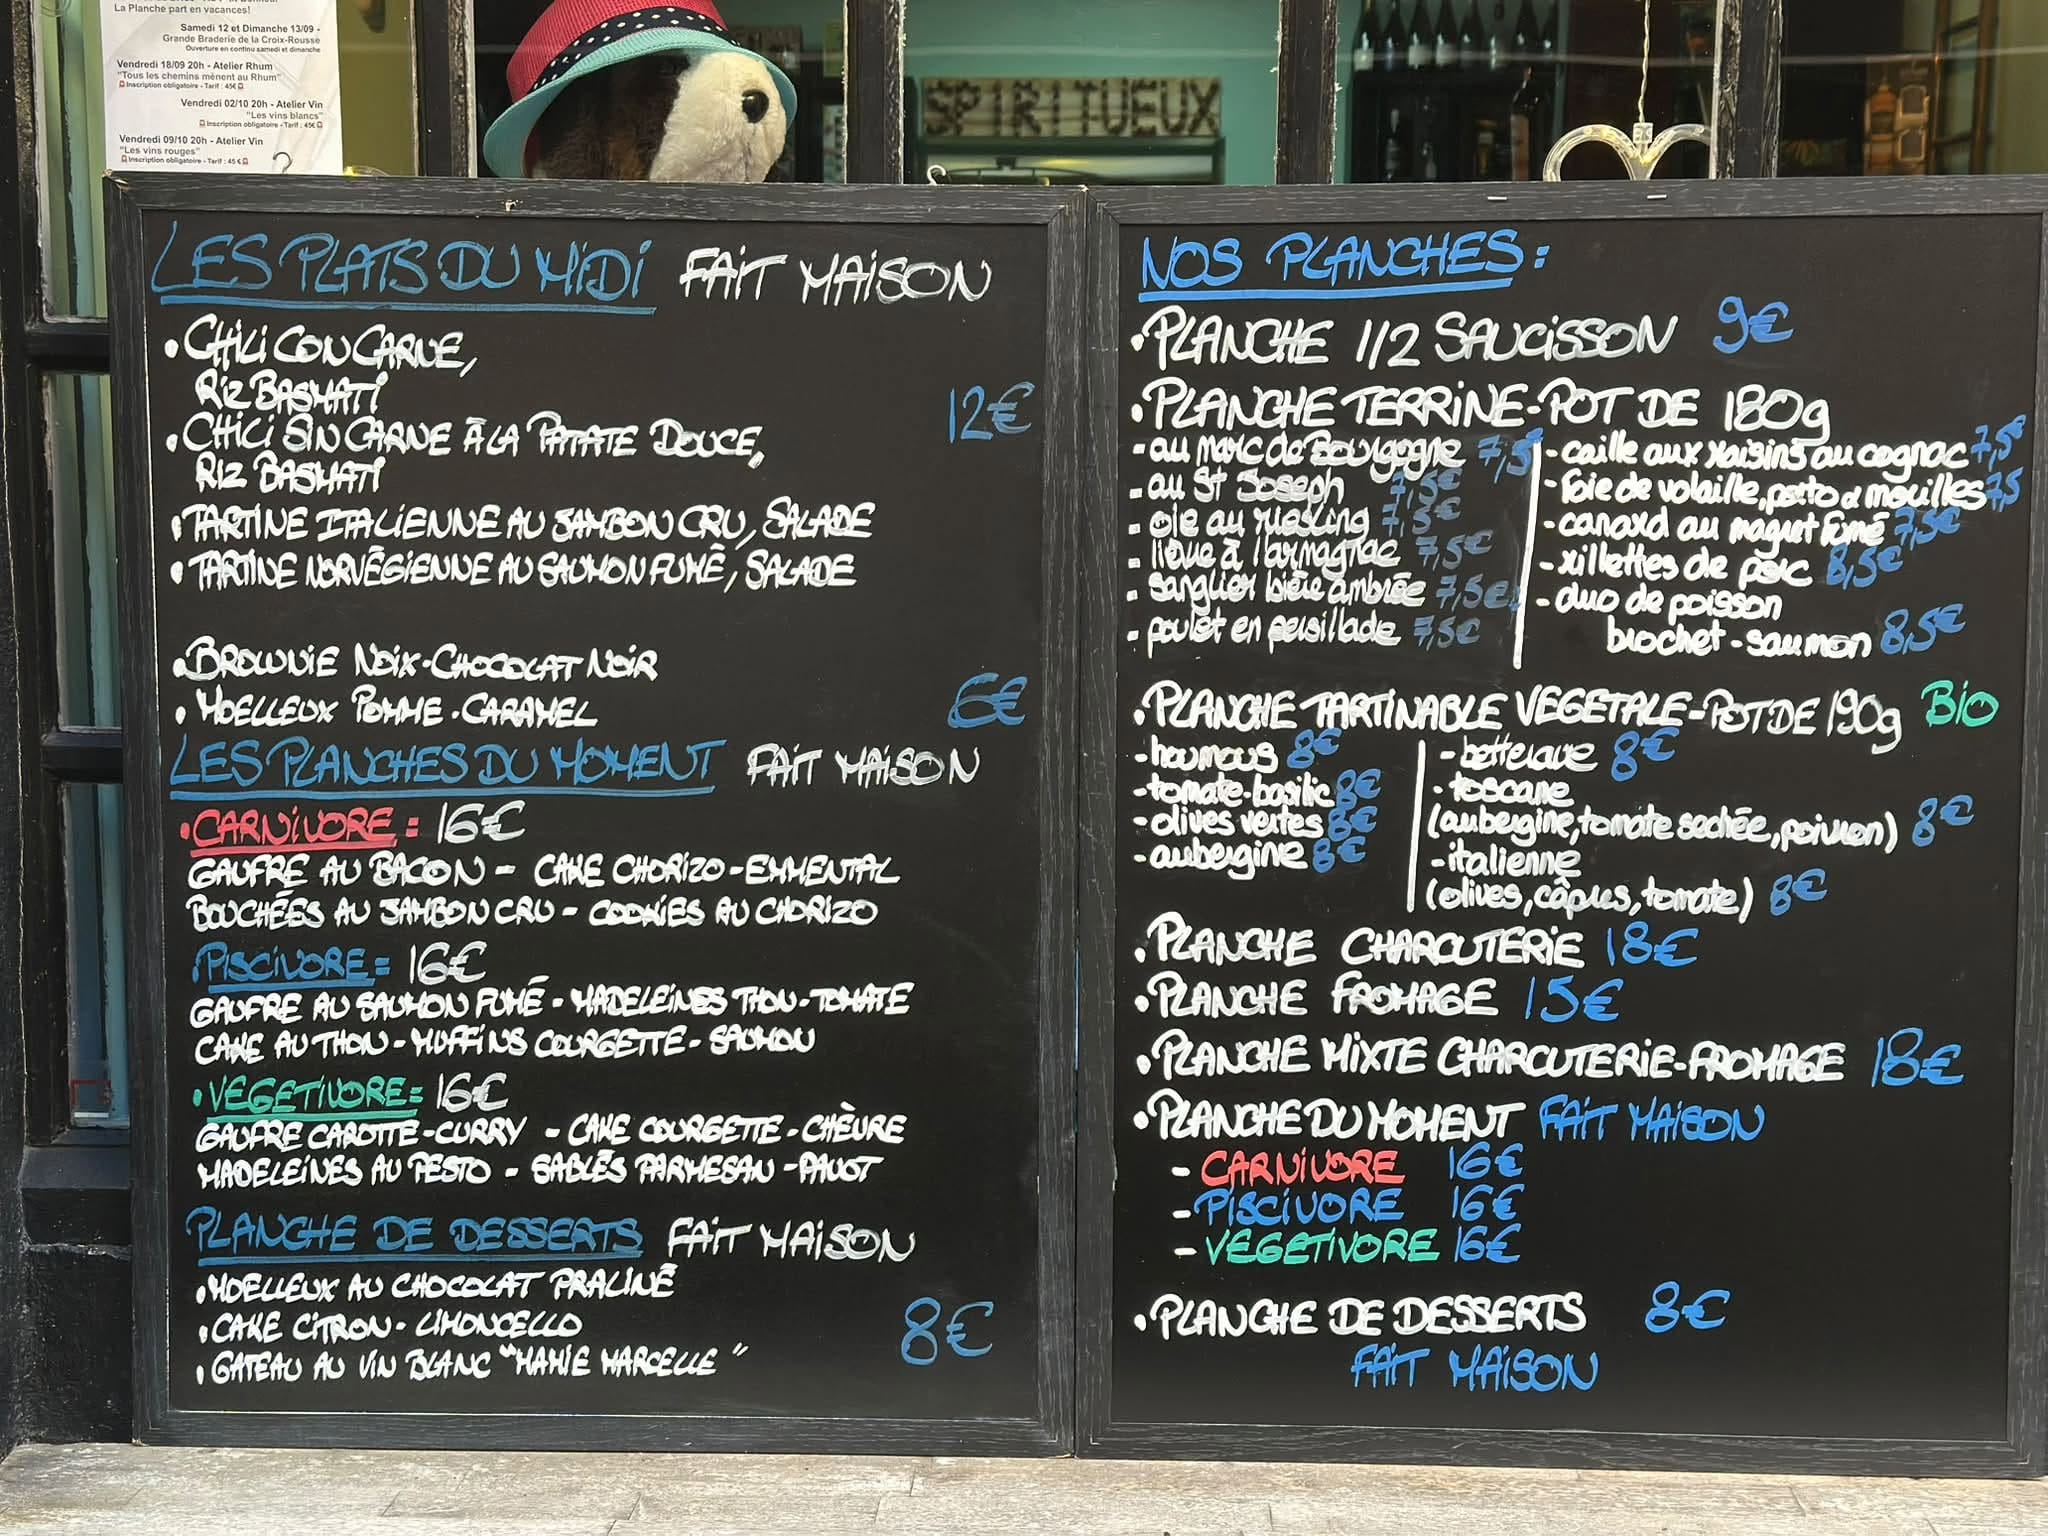 La Planche part en vacances!
Samedi 12 et Dimanche 13/09 -
Grande Braderie de la Croix-Rousse
Ouverture en continu samedi et dimanche
Vendredi 18/09 20h - Atelier Rhum
"Tous les chemins mènent au Rhum"
Inscription obligatoire - Tarif : 45€
Vendredi 02/10 20h - Atelier Vin
"Les vins blancs"
Inscription obligatoire - Tarif : 45€
Vendredi 09/10 20h - Atelier Vin
"Les vins rouges"
Inscription obligatoire - Tarif : 45 €
SPIRITUEUX
LES PLATS DU MIDI FAIT MAISON
• CHILI CON CARNE,
RIZ BASMATI
12€
• CHILI SIN CARNE À LA PATATE DOUCE,
RIZ BASMATI
• TARTINE ITALIENNE AU JAMBON CRU, SALADE
• TARTINE NORVÉGIENNE AU SAUMON FUMÉ, SALADE
• BROWNIE NOIX-CHOCOLAT NOIR
• MOELLEUX POMME-CARAMEL 6€
LES PLANCHES DU MOMENT FAIT MAISON
• CARNIVORE = 16€
GAUFRE AU BACON - CAKE CHORIZO-EMMENTAL
BOUCHÉES AU JAMBON CRU - COOKIES AU CHORIZO
PISCIVORE = 16€
GAUFRE AU SAUMON FUMÉ - MADELEINES THON-TOMATE
CAKE AU THON - MUFFINS COURGETTE-SAUMON
• VEGETIVORE = 16€
GAUFRE CAROTTE-CURRY - CAKE COURGETTE-CHÈVRE
MADELEINES AU PESTO - SABLÉS PARMESAN-PAVOT
PLANCHE DE DESSERTS FAIT MAISON
• MOELLEUX AU CHOCOLAT PRALINÉ
• CAKE CITRON-LIMONCELLO 8€
• GATEAU AU VIN BLANC "MAMIE MARCELLE"
NOS PLANCHES :
• PLANCHE 1/2 SAUCISSON 9€
• PLANCHE TERRINE-POT DE 180g
- au marc de Bourgogne 7,5€
- au St Joseph 7,5€
- oie au riesling 7,5€
- lièvre à l'armagnac 7,5€
- sanglier bière ambrée 7,5€
- poulet en persillade 7,5€
- caille aux raisins au cognac 7,5€
- foie de volaille, porto & morilles 7,5
- canard au magret fumé 7,5€
- rillettes de porc 8,5€
- duo de poisson
brochet-saumon 8,5€
• PLANCHE TARTINABLE VEGETALE-POT DE 190g BIO
- houmous 8€
- tomate-basilic 8€
- olives vertes 8€
- aubergine 8€
- betterave 8€
- toscane
(aubergine, tomate sechée, poivron) 8€
- italienne
(olives, câpres, tomate) 8€
• PLANCHE CHARCUTERIE 18€
• PLANCHE FROMAGE 15€
• PLANCHE MIXTE CHARCUTERIE-FROMAGE 18€
• PLANCHE DU MOMENT FAIT MAISON
- CARNIVORE 16€
- PISCIVORE 16€
- VEGETIVORE 16€
• PLANCHE DE DESSERTS 8€
FAIT MAISON